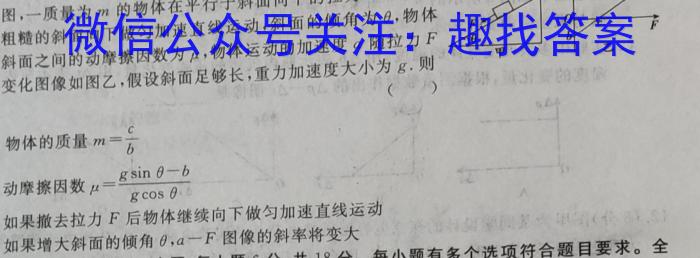 图,一质量为m的物体在平行于斜面向下的拉
粗糙的斜面向下做匀加速直线运动,斜面的倾角为θ,物体
微信公众号关注:趣找答案
斜面之间的动摩擦因数为μ,物体运动的加速度 随拉力F
变化图像如图乙,假设斜面足够长,重力加速度大小为g.则
( )
F
物体的质量m=c/b
动摩擦因数μ=(g sin θ-b)/(g cos θ)
如果撤去拉力F后物体继续向下做匀加速直线运动
如果增大斜面的倾角θ,a-F图像的斜率将变大
6分,共18分. 每小题有多个选项符合题目要求。全